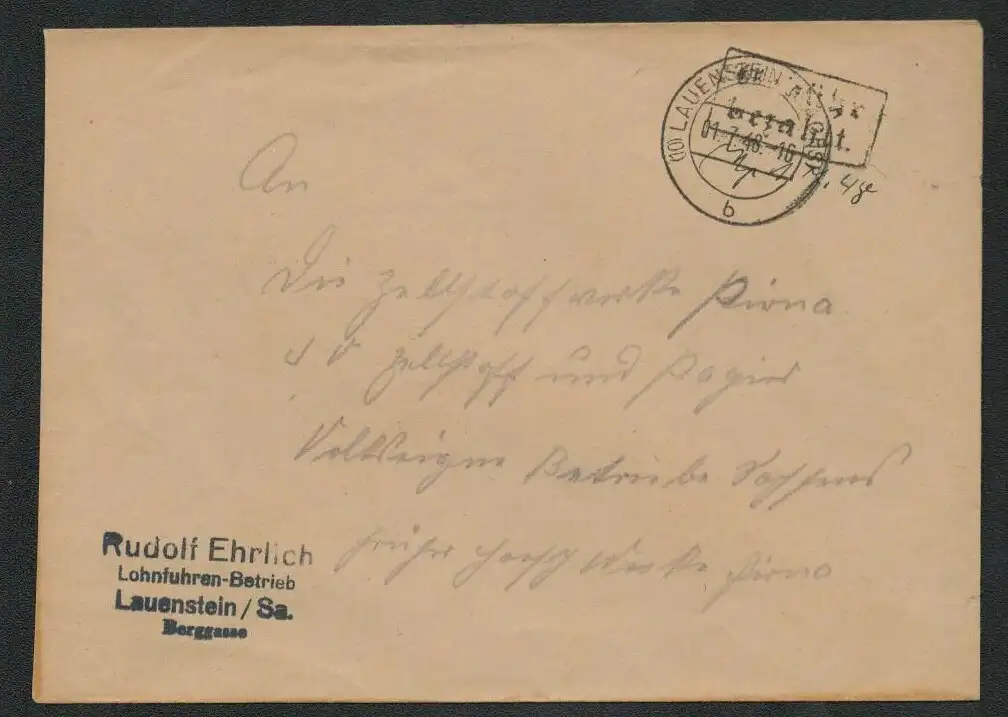 (10) LAUENSTEIN
bezahlt.
01.7.48.-18
b
An
Die Zellstoffwerke Pirna
Zellstoff und Papier
Volkseigene Betriebe Sachsens
früher Hoesch Werke Pirna
Rudolf Ehrlich
Lohnfuhren-Betrieb
Lauenstein / Sa.
Berggasse